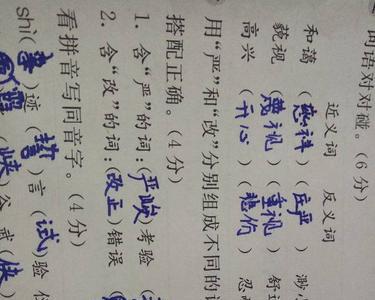 词语对对碰。(6分)
近义词 反义词
和蔼 (慈祥) (庄严) 渺小
藐视 (蔑视) (重视) 舒适
高兴 (开心) (悲伤) 忍
用“严”和“改”分别组成不同的词
搭配正确。(4分)
1. 含“严”的词:(严峻)考验
2. 含“改”的词:(改正)错误
看拼音写同音字。(4分)
shì(事)迹 (誓)言 (试)验
(峡)谷 武(侠)